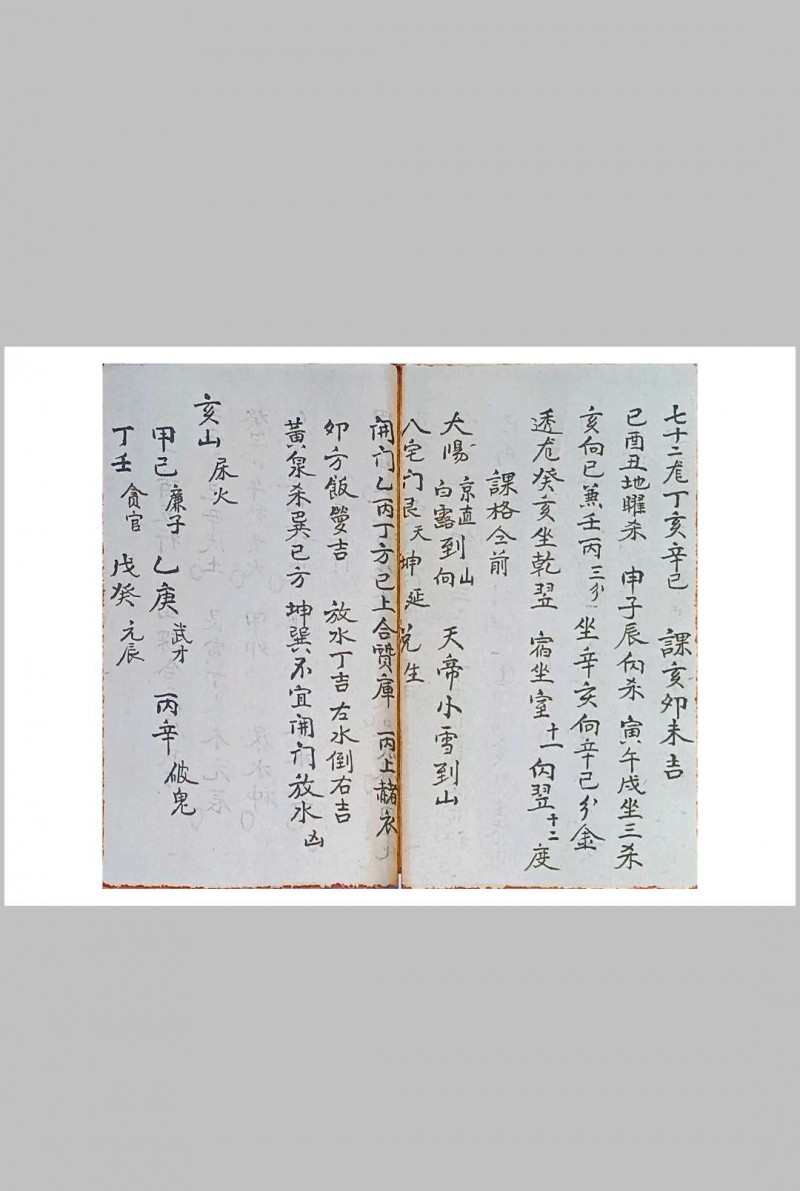 七十二龙丁亥辛巳 課亥卯未吉
巳酉丑地曜杀 申子辰向杀 寅午戌坐三杀
亥向巳兼壬丙三分 坐辛亥向辛巳分金
透龙癸亥坐乾翌 宿坐室十一向翌十二度
課格仝前
太陽京直到山 白露到向 天帝小雪到山
八宅门艮天 坤延 兑生
開门乙丙丁方巳上合賛庫 丙上赭衣
卯方飯爨吉 放水丁吉左水倒右吉
黃泉杀巽巳方 坤巽不宜開门放水凶
亥山 尿火
甲己廉子 乙庚武才 丙辛破鬼
丁壬貪官 戊癸元辰